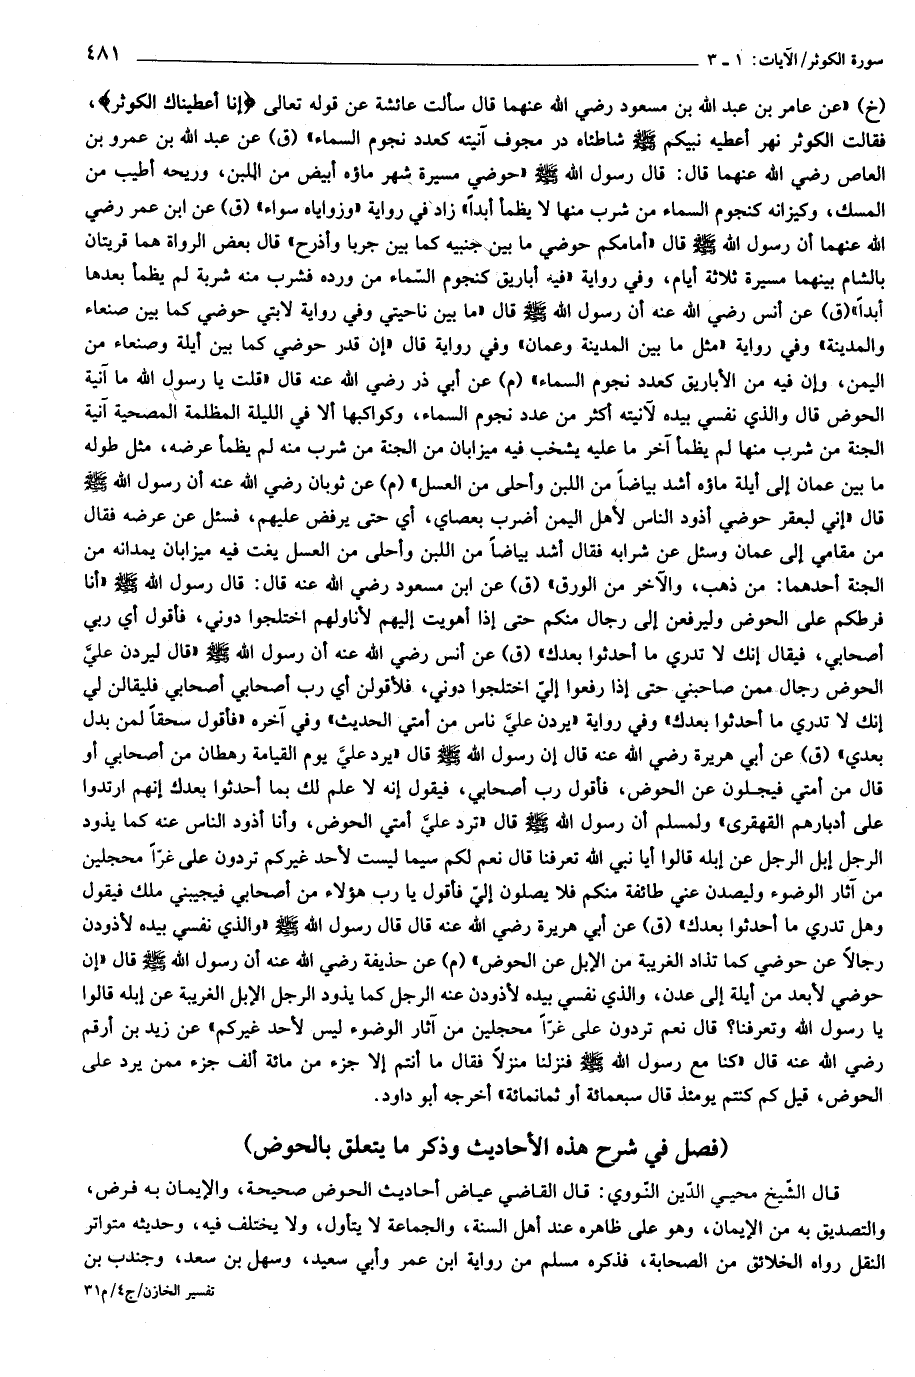 سورة الكوثر/ الآيات: ١ ـ ٣ ٤٨١
(خ) «عن عامر بن عبد الله بن مسعود رضي الله عنهما قال سألت عائشة عن قوله تعالى ﴿إنا أعطيناك الكوثر﴾،
فقالت الكوثر نهر أعطيه نبيكم ﷺ شاطئاه در مجوف آنيته كعدد نجوم السماء» (ق) عن عبد الله بن عمرو بن
العاص رضي الله عنهما قال: قال رسول الله ﷺ «حوضي مسيرة شهر ماؤه أبيض من اللبن، وريحه أطيب من
المسك، وكيزانه كنجوم السماء من شرب منها لا يظمأ أبداً» زاد في رواية «وزواياه سواء» (ق) عن ابن عمر رضي
الله عنهما أن رسول الله ﷺ قال «أمامكم حوضي ما بين جنبيه كما بين جربا وأذرح» قال بعض الرواة هما قريتان
بالشام بينهما مسيرة ثلاثة أيام، وفي رواية «فيه أباريق كنجوم السّماء من ورده فشرب منه شربة لم يظمأ بعدها
أبداً»(ق) عن أنس رضي الله عنه أن رسول الله ﷺ قال «ما بين ناحيتي وفي رواية لابتي حوضي كما بين صنعاء
والمدينة» وفي رواية «مثل ما بين المدينة وعمان» وفي رواية قال «إن قدر حوضي كما بين أيلة وصنعاء من
اليمن، وإن فيه من الأباريق كعدد نجوم السماء» (م) عن أبي ذر رضي الله عنه قال «قلت يا رسول الله ما آنية
الحوض قال والذي نفسي بيده لآنيته أكثر من عدد نجوم السماء، وكواكبها ألا في الليلة المظلمة المصحية آنية
الجنة من شرب منها لم يظمأ آخر ما عليه يشخب فيه ميزابان من الجنة من شرب منه لم يظمأ عرضه، مثل طوله
ما بين عمان إلى أيلة ماؤه أشد بياضاً من اللبن وأحلى من العسل» (م) عن ثوبان رضي الله عنه أن رسول الله ﷺ
قال «إني لبعقر حوضي أذود الناس لأهل اليمن أضرب بعصاي، أي حتى يرفض عليهم، فسئل عن عرضه فقال
من مقامي إلى عمان وسئل عن شرابه فقال أشد بياضاً من اللبن وأحلى من العسل يغت فيه ميزابان يمدانه من
الجنة أحدهما: من ذهب، والآخر من الورق» (ق) عن ابن مسعود رضي الله عنه قال: قال رسول الله ﷺ «أنا
فرطكم على الحوض وليرفعن إلى رجال منكم حتى إذا أهويت إليهم لأناولهم اختلجوا دوني، فأقول أي ربي
أصحابي، فيقال إنك لا تدري ما أحدثوا بعدك» (ق) عن أنس رضي الله عنه أن رسول الله ﷺ «قال ليردن عليَّ
الحوض رجال ممن صاحبني حتى إذا رفعوا إليّ اختلجوا دوني، فلأقولن أي رب أصحابي أصحابي فليقالن لي
إنك لا تدري ما أحدثوا بعدك» وفي رواية «يردن عليَّ ناس من أمتي الحديث» وفي آخره «فأقول سحقاً لمن بدل
بعدي» (ق) عن أبي هريرة رضي الله عنه قال إن رسول الله ﷺ قال «يرد عليَّ يوم القيامة رهطان من أصحابي أو
قال من أمتي فيجلون عن الحوض، فأقول رب أصحابي، فيقول إنه لا علم لك بما أحدثوا بعدك إنهم ارتدوا
على أدبارهم القهقرى» ولمسلم أن رسول الله ﷺ قال «ترد عليَّ أمتي الحوض، وأنا أذود الناس عنه كما يذود
الرجل إبل الرجل عن إبله قالوا أيا نبي الله تعرفنا قال نعم لكم سيما ليست لأحد غيركم تردون على غرّاً محجلين
من آثار الوضوء وليصدن عني طائفة منكم فلا يصلون إليّ فأقول يا رب هؤلاء من أصحابي فيجيبني ملك فيقول
وهل تدري ما أحدثوا بعدك» (ق) عن أبي هريرة رضي الله عنه قال قال رسول الله ﷺ «والذي نفسي بيده لأذودن
رجالاً عن حوضي كما تذاد الغريبة من الإبل عن الحوض» (م) عن حذيفة رضي الله عنه أن رسول الله ﷺ قال «إن
حوضي لأبعد من أيلة إلى عدن، والذي نفسي بيده لأذودن عنه الرجل كما يذود الرجل الإبل الغريبة عن إبله قالوا
يا رسول الله وتعرفنا؟ قال نعم تردون على غرّاً محجلين من آثار الوضوء ليس لأحد غيركم» عن زيد بن أرقم
رضي الله عنه قال «كنا مع رسول الله ﷺ فنزلنا منزلاً فقال ما أنتم إلا جزء من مائة ألف جزء ممن يرد على
الحوض، قيل كم كنتم يومئذ قال سبعمائة أو ثمانمائة» أخرجه أبو داود.
(فصل في شرح هذه الأحاديث وذكر ما يتعلق بالحوض)
قال الشّيخ محيي الدّين النّووي: قال القاضي عياض أحاديث الحوض صحيحة، والإيمان به فرض،
والتصديق به من الإيمان، وهو على ظاهره عند أهل السنة، والجماعة لا يتأول، ولا يختلف فيه، وحديثه متواتر
النقل رواه الخلائق من الصحابة، فذكره مسلم من رواية ابن عمر وأبي سعيد، وسهل بن سعد، وجندب بن
تفسير الخازن/ج٤/م٣١